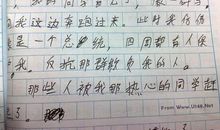 我这边奔跑过来，此时我仿佛
是一个总统，四周都有人保
我。反抗那群欺负我的人。
那些人被我那热心的同学赶
了。
From www.Ut48.Net